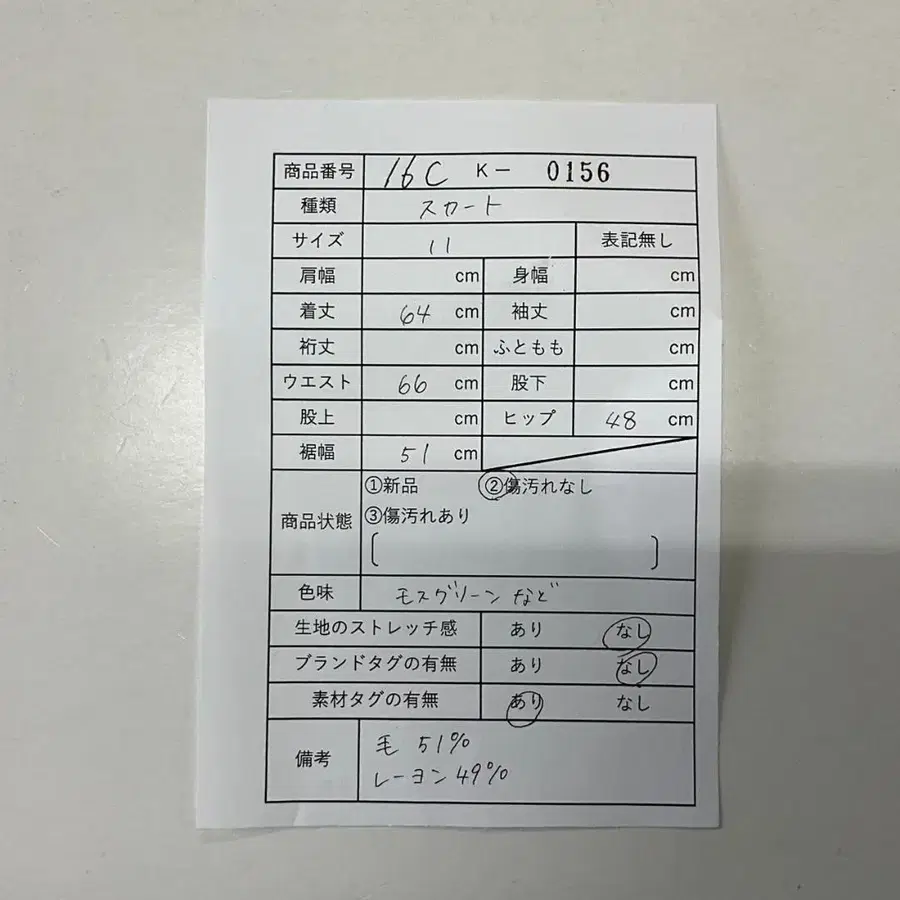 商品番号 16C K- 0156
種類 スカート
サイズ 11 表記無し
肩幅 cm 身幅 cm
着丈 64 cm 袖丈 cm
裄丈 cm ふともも cm
ウエスト 66 cm 股下 cm
股上 cm ヒップ 48 cm
裾幅 51 cm
①新品 ②傷汚れなし
商品状態 ③傷汚れあり
[ ]
色味 モスグリーンなど
生地のストレッチ感 あり なし
ブランドタグの有無 あり なし
素材タグの有無 あり なし
備考 毛 51%
レーヨン 49%